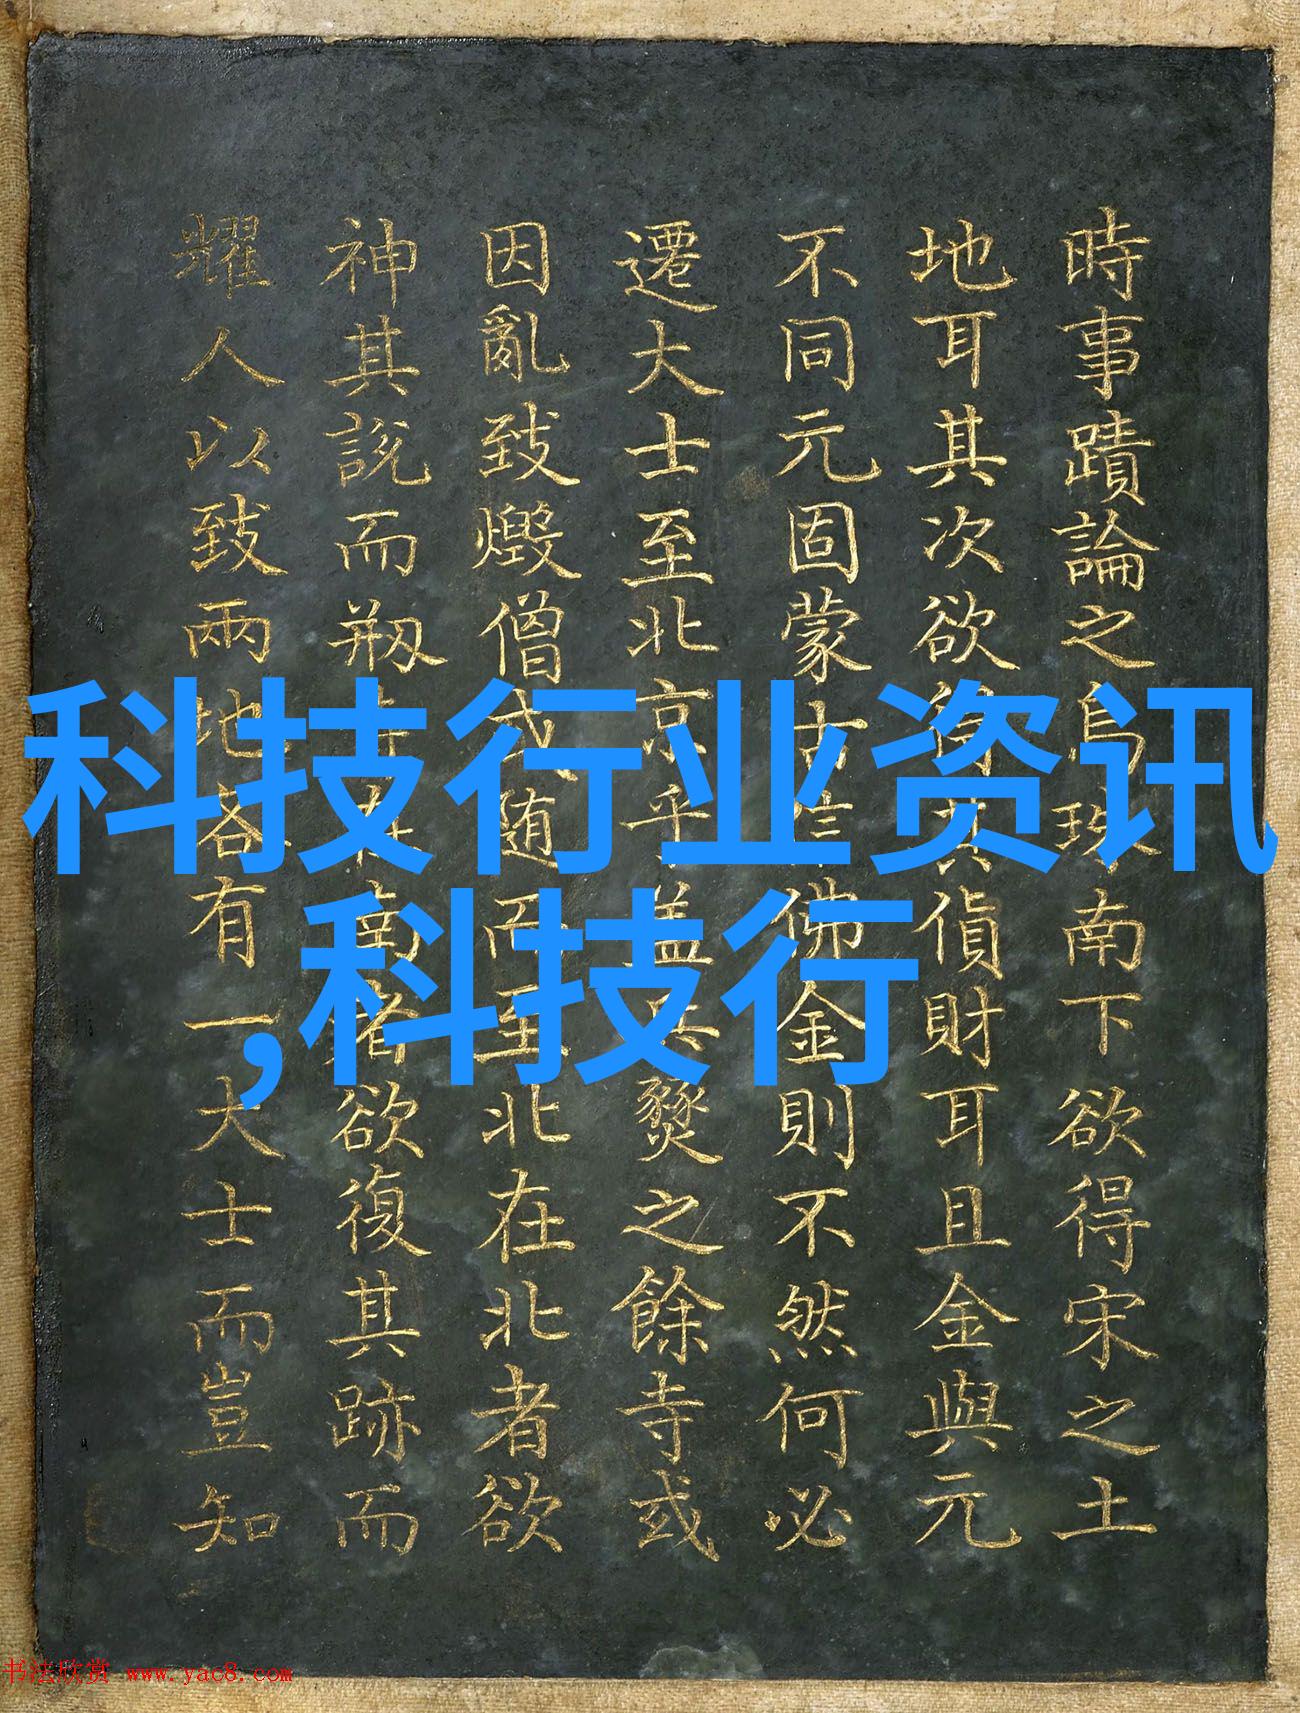 時事蹟論之烏珠南下欲得宋之土
地耳其次欲得其貨財耳且金與元
不同元固蒙古佛金則不然何必
遷大士至北京乎蓋兵燹之餘寺或
因亂致燬僧或随而至北在北者欲
神其說而剏在南者欲復其跡而
耀人以致兩地各有一大士而豈知
科技行业资讯
,科技行
书法欣赏 www.yac8.com